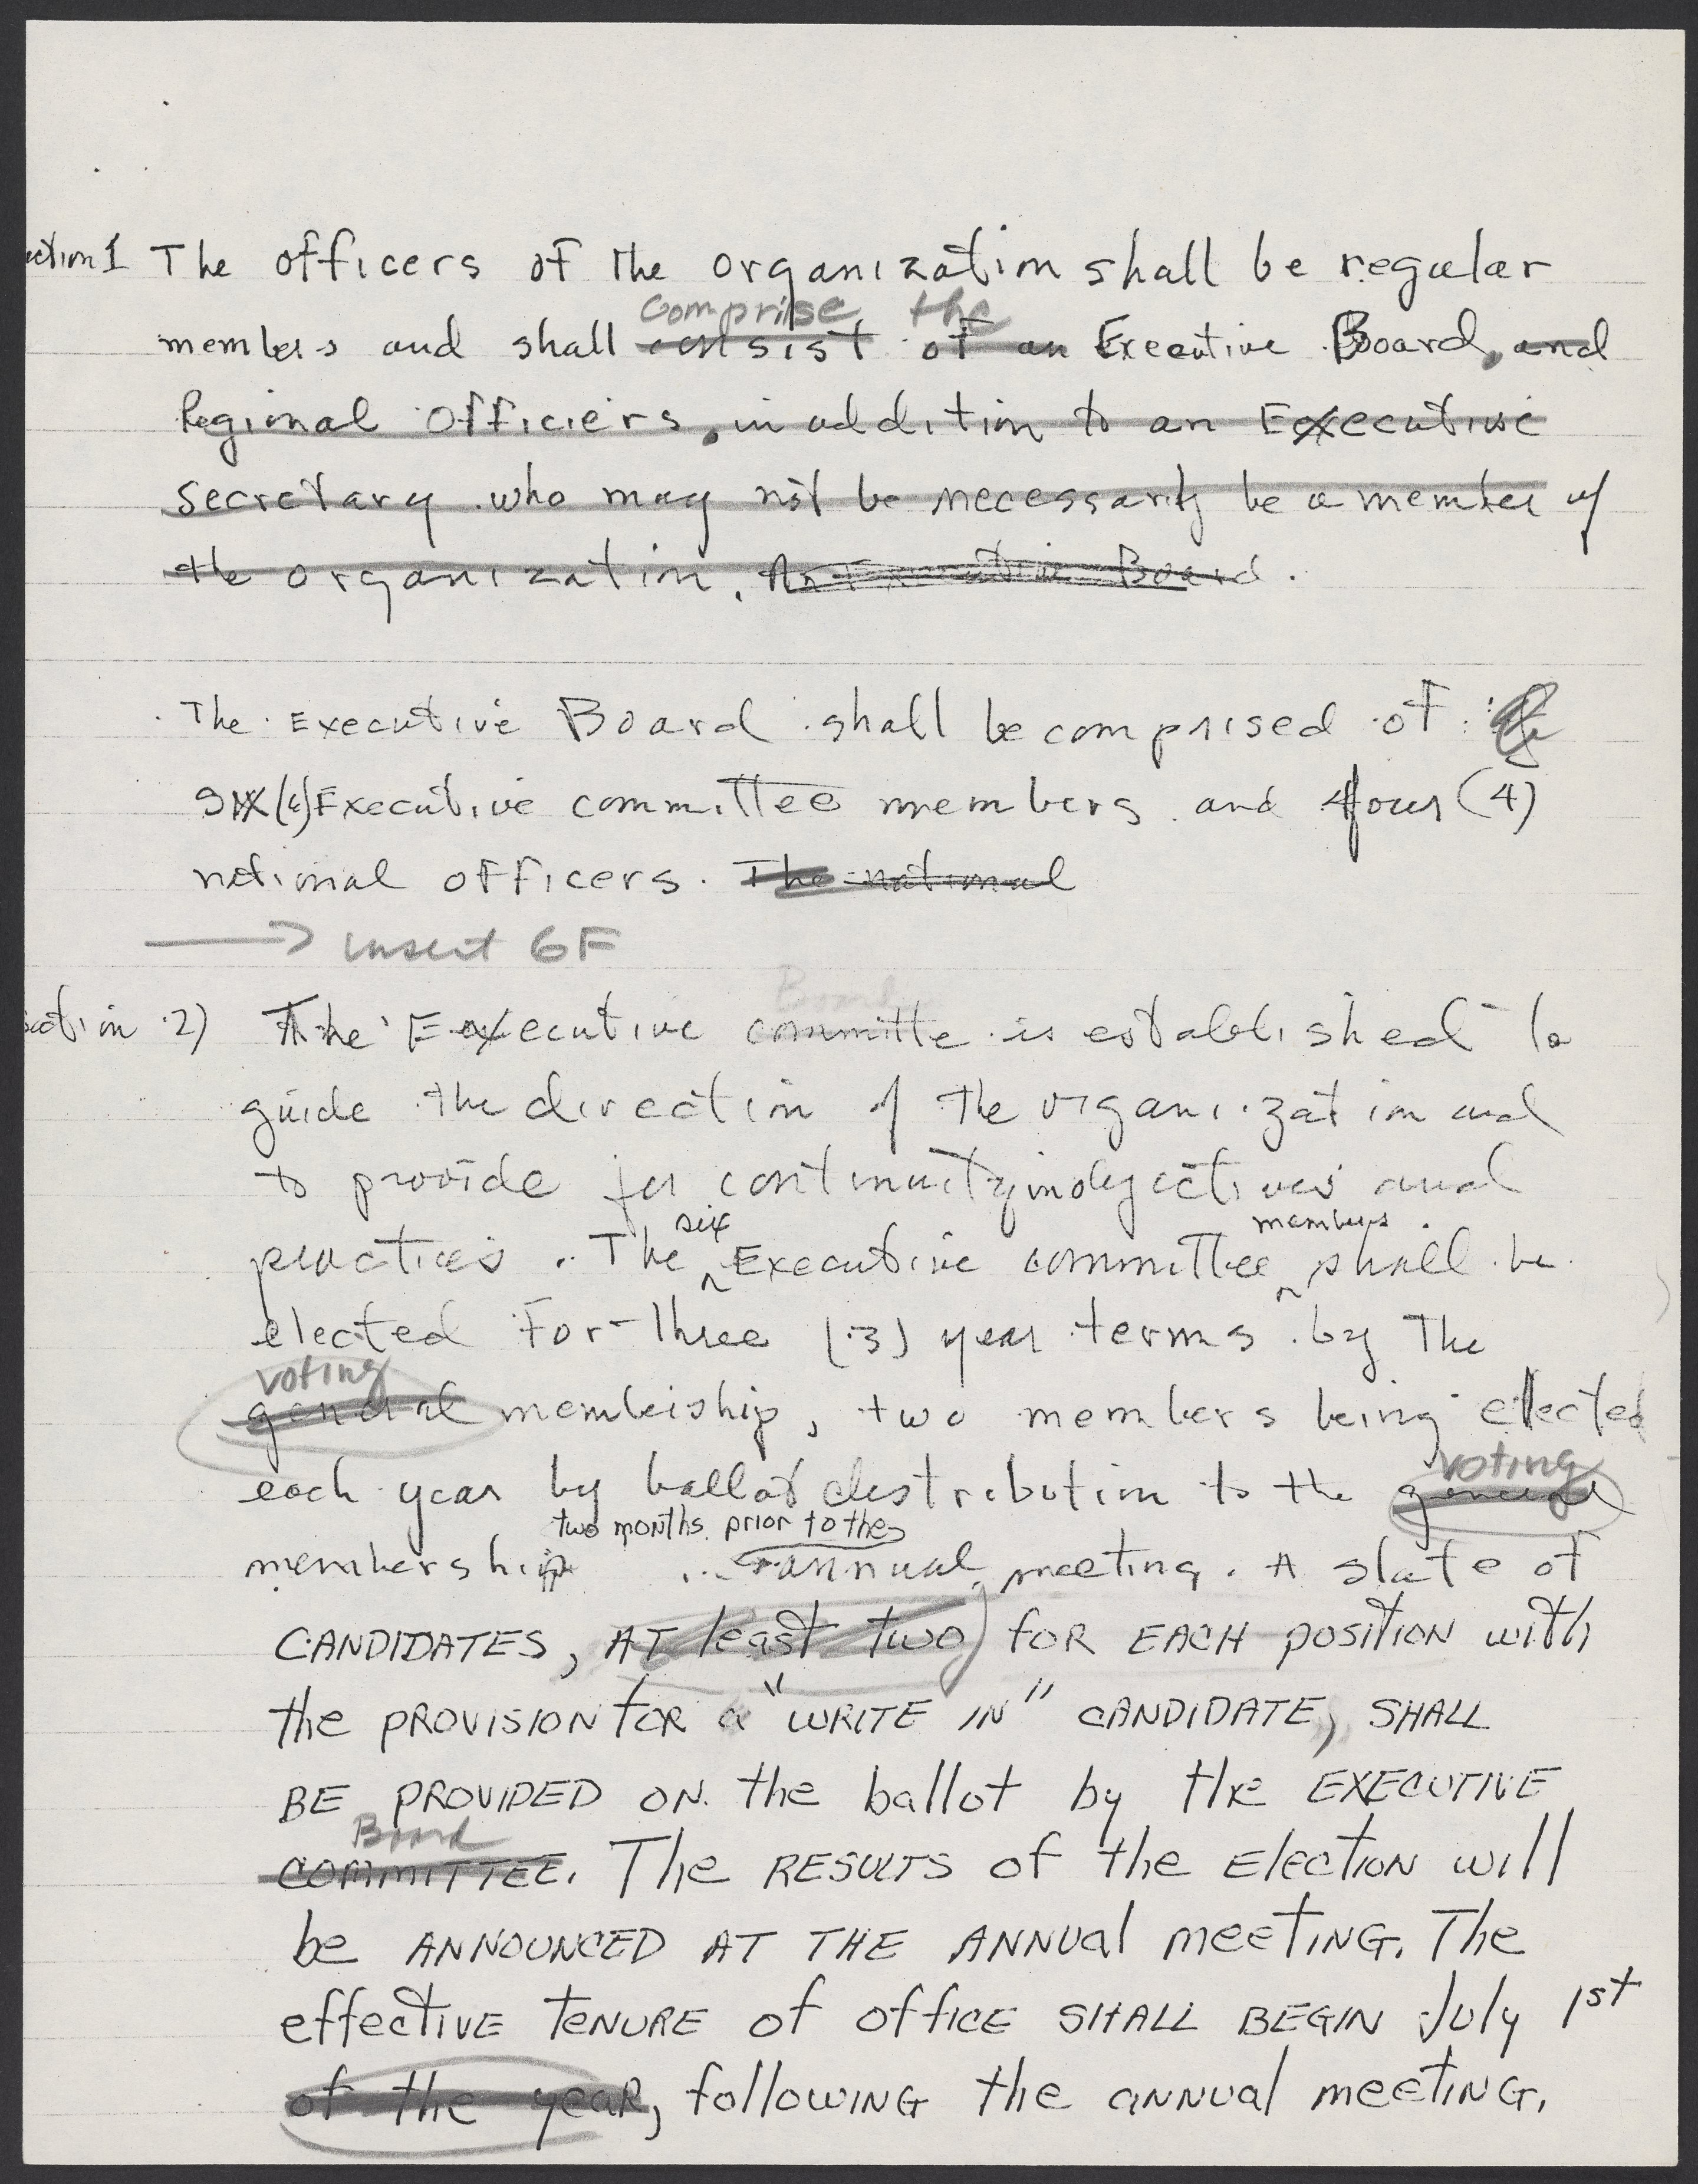 ection 1 The officers of the organization shall be regular
comprise the
members and shall consist of an Executive Board, and
Regional Officiers, in addition to an Executive
Secretary who may not be necessarily be a member of
the organization. An Executive Board.
The Executive Board shall be comprised of
six (6) Executive committee members and four (4)
national officers. The national
→ insert 6F
Board
ection 2) The Executive committe is established to
guide the direction of the organization and
to provide for continuity in objectives and
six members
practices. The Executive committee shall be
elected for three (3) year terms by the
voting
general membership, two members being elected
each year by ballot distribution to the general
voting
two months prior to the
membership annual meeting. A slate of
CANDIDATES, AT least two) FOR EACH position with
the PROVISION FOR a "WRITE IN" CANDIDATE, SHALL
BE PROVIDED ON the ballot by the EXECUTIVE
Board
COMMITTEE. The RESULTS of the Election will
be ANNOUNCED AT THE ANNUal meeTING. The
effecTIVE TENURE of office SHALL BEGIN July 1st
of the yeaR, following the annual meeTING.